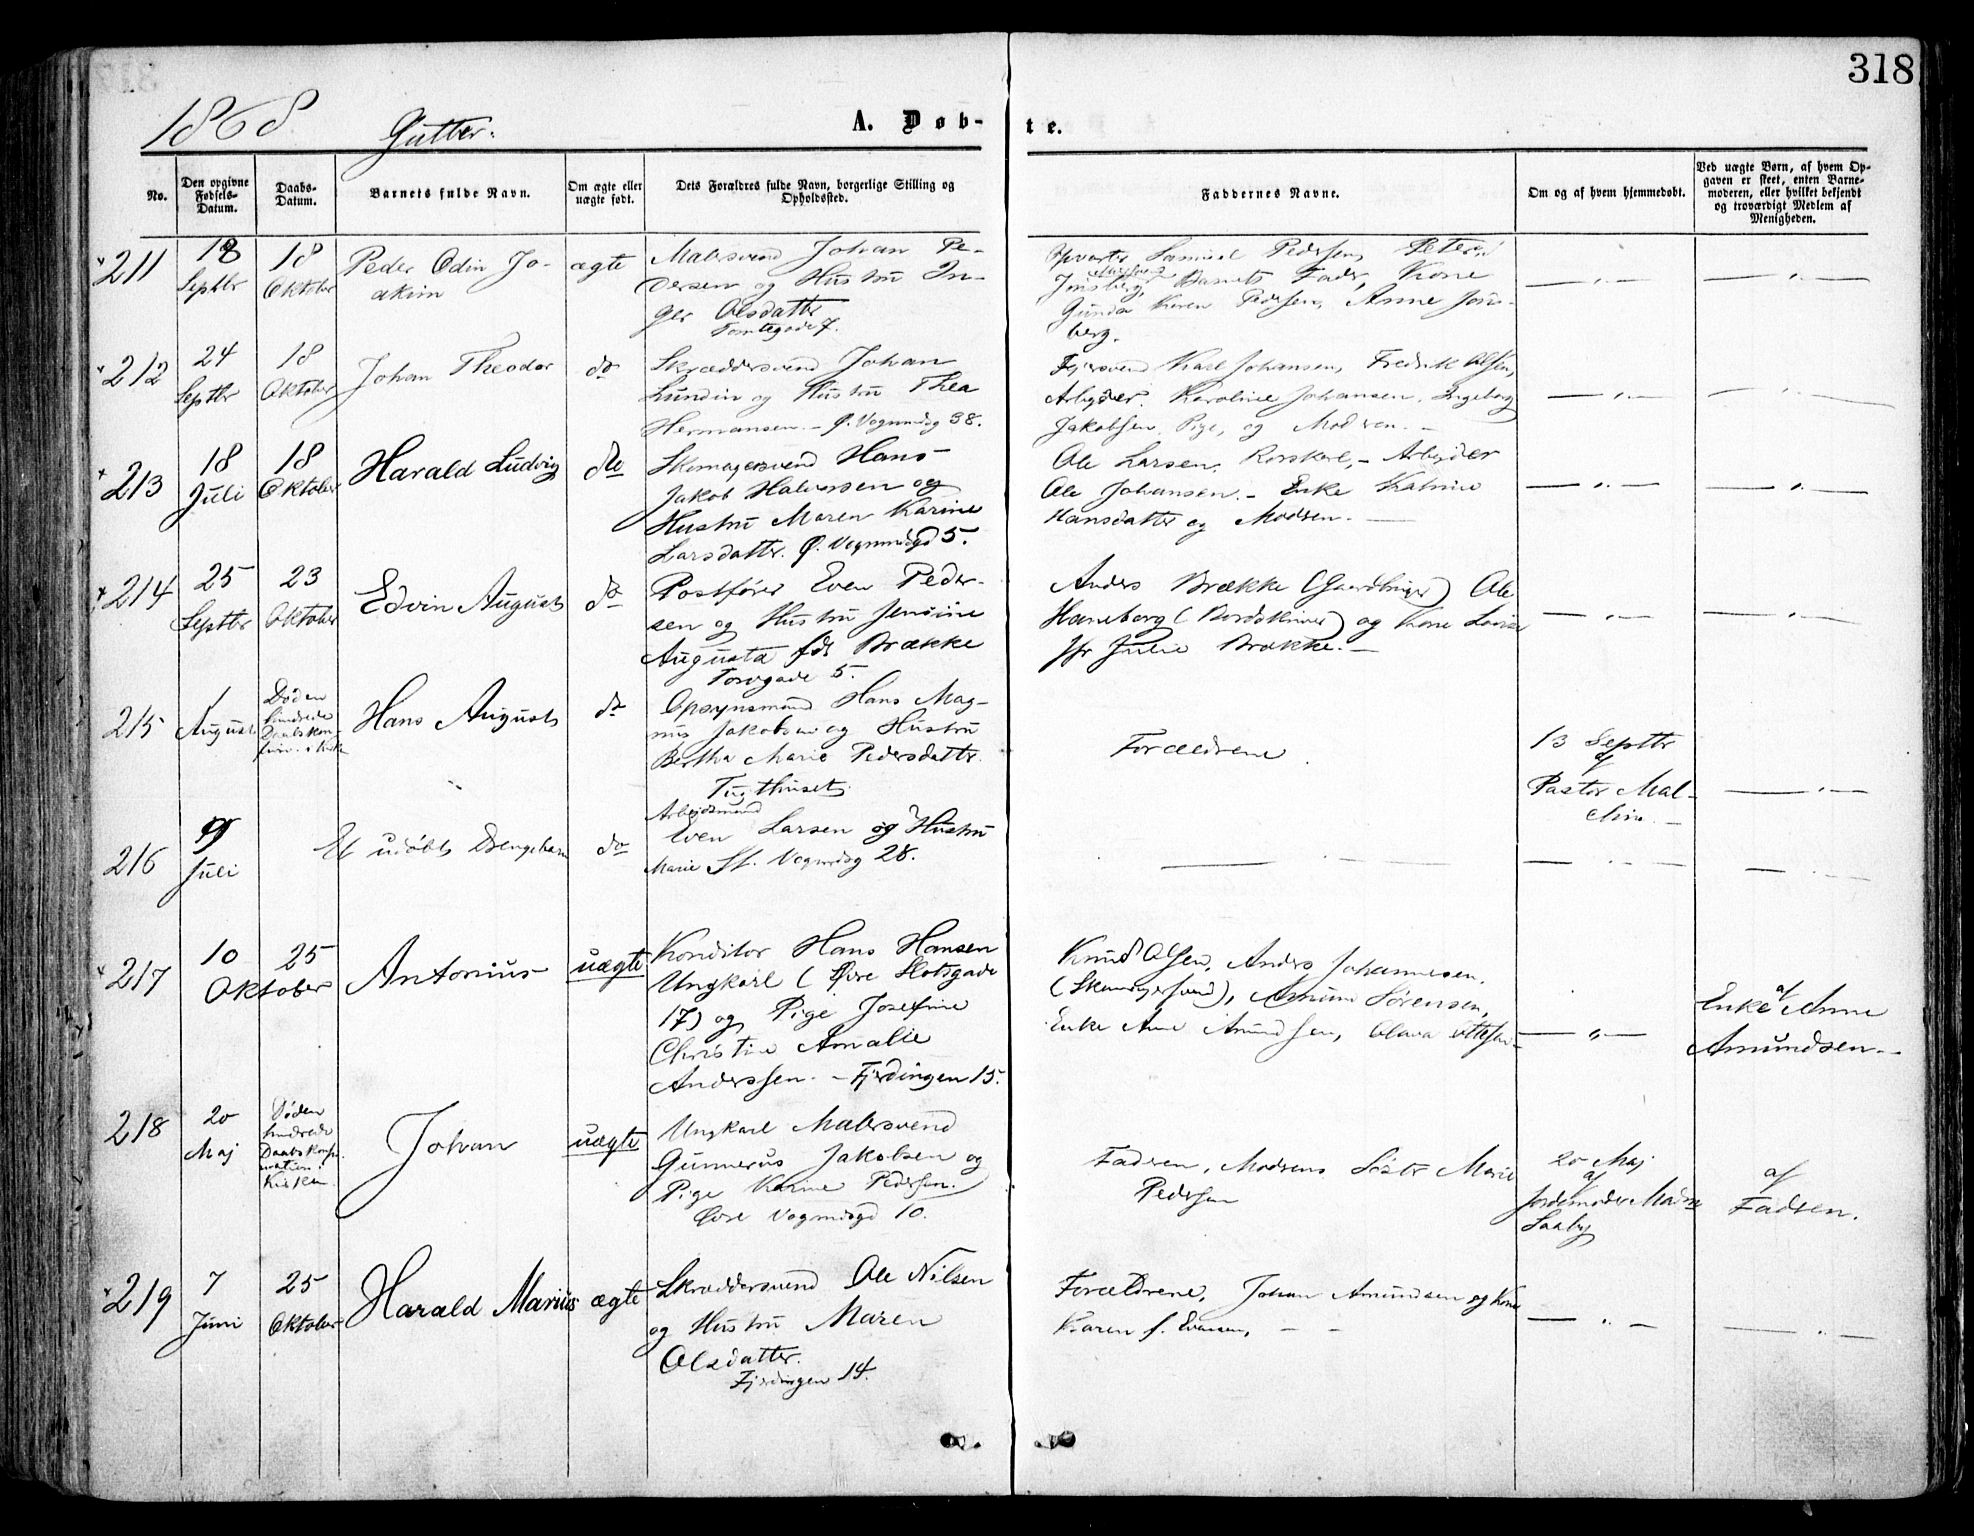 318
1868
Gutter.
A. Døb-
te.
No.
Den opgivne Fødsels-Datum.
Daabs-Datum.
Barnets fulde Navn.
Om ægte eller uægte født.
Dets Forældres fulde Navn, borgerlige Stilling og Opholdssted.
Faddernes Navne.
Om og af hvem hjemmedøbt.
Ved uægte Børn, af hvem Opgaven er skeet, enten Barnemoderen, eller hvilket bekjendt og troværdigt Medlem af Menigheden.
211
18 Septbr
18 Oktober
Peder Odin Jo-
akim
ægte
Malersvend Johan Pe-
dersen og Hustru In-
ger Olsdatter
Tomtegade 7.
Samuel Pedersen, Peter
Jonsberg, Barnets Fader, Kone
Gunda Karen Pedersen, Anne Jons-
berg.
212
24 Septbr
18 Oktober
Johan Theodor
do
Skræddersvend Johan
Lundin og Hustru Thea
Hermansen. - Ø. Vognmdsg 38.
Karl Johansen, Fredrik Olsen,
Arbejder. Karoline Johansen, Ingeborg
Jakobsen, Pige, og Modren. -
213
18 Juli
18 Oktober
Harald Ludvig
do
Skomagersvend Hans
Jakob Halvorsen og
Hustru Maren Karine
Larsdatter. Ø. Vognmdsgd 5.
Ole Larsen, - Arbejder
Ole Johansen. - Enke Katrine
Hansdatter og Modren. -
214
25 Septbr
23 Oktober
Edvin August
do
Postfører Even Peder-
sen og Hustru Jensine
Augusta fdt Brække
Torvgade 5.
Anders Brække (Gaardbruger) Ole
Haneborg ( ) og Kone Lovise
Jfr Julie Brække. -
215
1 August
Døden
hindrede
Daabskon-
firm. i Kirk
Hans August
do
Opsynsmand Hans Mag-
nus Jakobsen og Hustru
Bertha Marie Pedersdatter.
Tugthuset.
Forældrene
13 Septbr
af
Pastor Mal-
216
9 Juli
Et udøbt Drengebarn
do
Arbejdsmand
Even Larsen og Hustru
Marie St. Vognmdsg 28.
217
10 Oktober
25
Antonius
uægte
Konditor Hans Hansen
Ungkarl ( Øvre Slotsgade
17) og Pige Josefine
Christine Amalie
Anderssen. - Fjerdingen 15.
Knud Olsen, Anders Johannesen,
(Skomagersvend), Amund Sørensen,
Enke Ane Amundsen, Olava Ottesen
af
Enke Anne
Amundsen. -
218
20 Maj
Døden
hindrede
Daabskonfir-
mation i
Kirken
Johan
uægte
Ungkarl Malersvend
Gunnerus Jakobsen og
Pige Karine Pedersen.
Øvre Vogmdsgd 10.
Fadren, Modrens Søster Marie
Pedersen
20 Maj
af
Jordemoder
Saaby
af
Fadren.
219
7 Juni
25 Oktober
Harald Marius
ægte
Skræddersvend Ole Nilsen
og Hustru Maren
Olsdatter.
Fjerdingen 14.
Forældrene, Johan Amundsen og Kone
Karen f. Evensen,